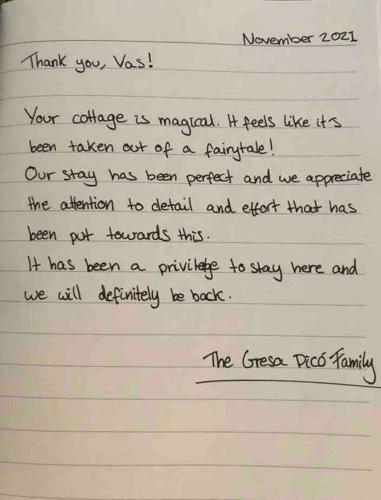 November 2021
Thank you, Vas!
Your cottage is magical. It feels like it's
been taken out of a fairytale!
Our stay has been perfect and we appreciate
the attention to detail and effort that has
been put towards this.
It has been a privilege to stay here and
we will definitely be back.
The Gresa Picó Family